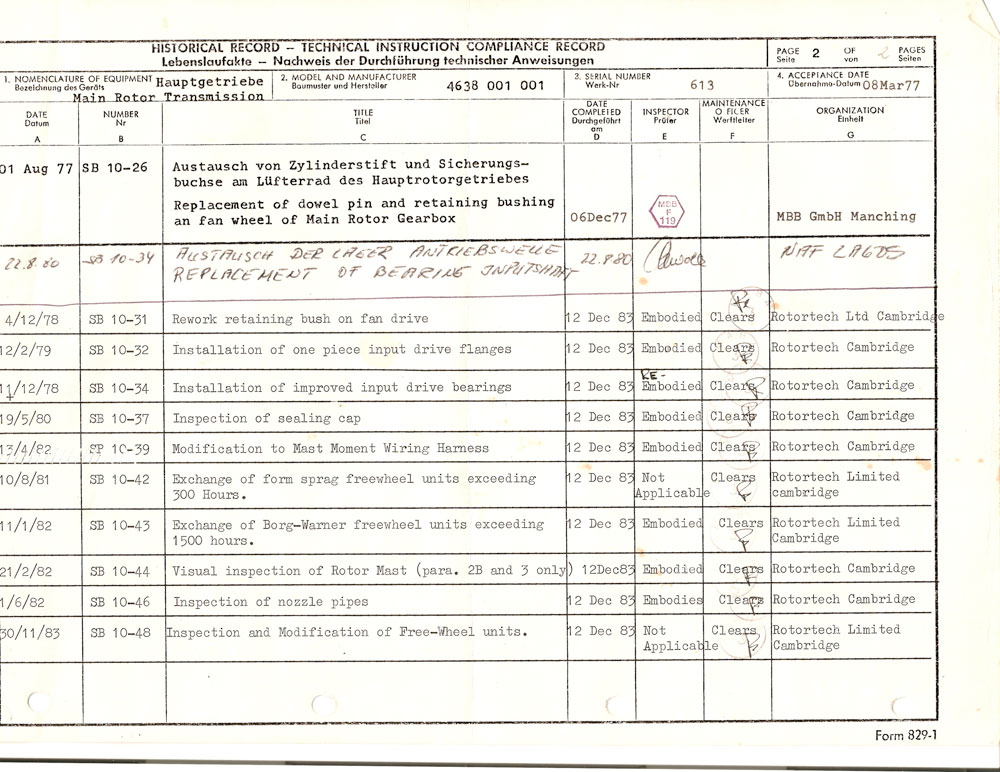 HISTORICAL RECORD – TECHNICAL INSTRUCTION COMPLIANCE RECORD
Lebenslaufakte – Nachweis der Durchführung technischer Anweisungen
PAGE 2 OF 2 PAGES
Seite von Seiten
1. NOMENCLATURE OF EQUIPMENT Hauptgetriebe
Bezeichnung des Geräts
Main Rotor Transmission
2. MODEL AND MANUFACTURER
Baumuster und Hersteller
4638 001 001
3. SERIAL NUMBER
Werk-Nr
613
4. ACCEPTANCE DATE
Übernahme-Datum 08Mar77
DATE
Datum
A
NUMBER
Nr
B
TITLE
Titel
C
DATE
COMPLETED
Durchgeführt
am
D
INSPECTOR
Prüfer
E
MAINTENANCE
O FICER
Werftleiter
F
ORGANIZATION
Einheit
G
01 Aug 77 SB 10-26 Austausch von Zylinderstift und Sicherungs-
buchse am Lüfterrad des Hauptrotorgetriebes
Replacement of dowel pin and retaining bushing
an fan wheel of Main Rotor Gearbox
06Dec77
MBB
F
119
MBB GmbH Manching
22.8.80 SB 10-34 AUSTAUSCH DER LAGER ANTRIEBSWELLE 22.8.80 NAF LAGOS
REPLACEMENT OF BEARING INPUTSHAFT
4/12/78 SB 10-31 Rework retaining bush on fan drive 12 Dec 83 Embodied Clears Rotortech Ltd Cambridge
12/2/79 SB 10-32 Installation of one piece input drive flanges 12 Dec 83 Embodied Clears Rotortech Cambridge
RE-
11/12/78 SB 10-34 Installation of improved input drive bearings 12 Dec 83 Embodied Clears Rotortech Cambridge
19/5/80 SB 10-37 Inspection of sealing cap 12 Dec 83 Embodied Clears Rotortech Cambridge
13/4/82 SP 10-39 Modification to Mast Moment Wiring Harness 12 Dec 83 Embodied Clears Rotortech Cambridge
10/8/81 SB 10-42 Exchange of form sprag freewheel units exceeding 12 Dec 83 Not Clears Rotortech Limited
300 Hours. Applicable cambridge
11/1/82 SB 10-43 Exchange of Borg-Warner freewheel units exceeding 12 Dec 83 Embodied Clears Rotortech Limited
1500 hours. Cambridge
21/2/82 SB 10-44 Visual inspection of Rotor Mast (para. 2B and 3 only) 12Dec83 Embodied Clears Rotortech Cambridge
1/6/82 SB 10-46 Inspection of nozzle pipes 12 Dec 83 Embodies Clears Rotortech Cambridge
30/11/83 SB 10-48 Inspection and Modification of Free-Wheel units. 12 Dec 83 Not Clears Rotortech Limited
Applicable Cambridge
Form 829-1